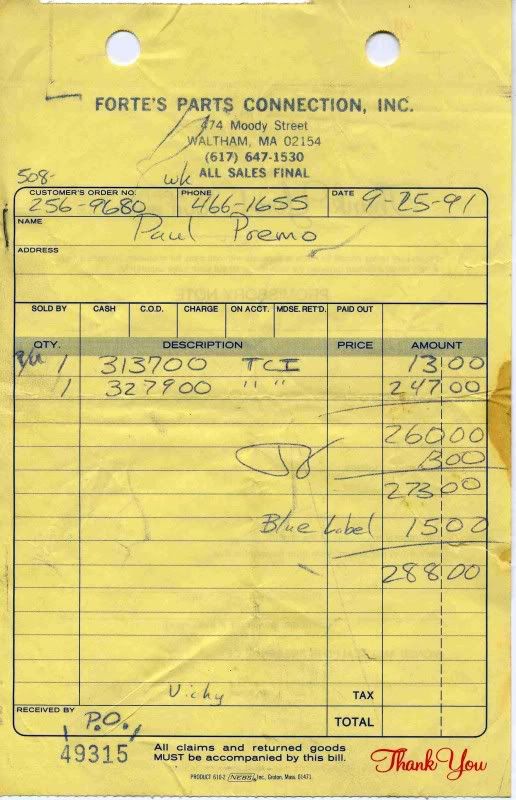 FORTE'S PARTS CONNECTION, INC.
474 Moody Street
WALTHAM, MA 02154
(617) 647-1530
508- wk ALL SALES FINAL
CUSTOMER'S ORDER NO. PHONE DATE
256-9680 466-1655 9-25-91
NAME Paul Premo
ADDRESS
SOLD BY CASH C.O.D. CHARGE ON ACCT. MDSE. RET'D. PAID OUT
QTY. DESCRIPTION PRICE AMOUNT
1 313700 TCI 13 00
1 327900 " " 247 00
260 00
13 00
273 00
Blue Label 15 00
288 00
Vicky TAX
RECEIVED BY P.O. TOTAL
49315 All claims and returned goods
MUST be accompanied by this bill.
Thank You
PRODUCT 610-2 NEBS Inc. Groton, Mass. 01471